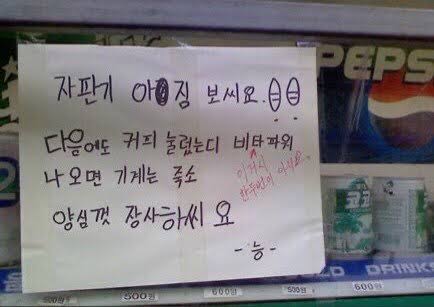 PEPS
자판기 아짐 보씨요.
다음에도 커피 눌렀는디 비타파워
이거시
한두번이 아니요.
나 오면 기계는 죽소
양심껏 장사하씨 요
-능-
코코
LD DRINK
500원
500원
600원
500원
500원